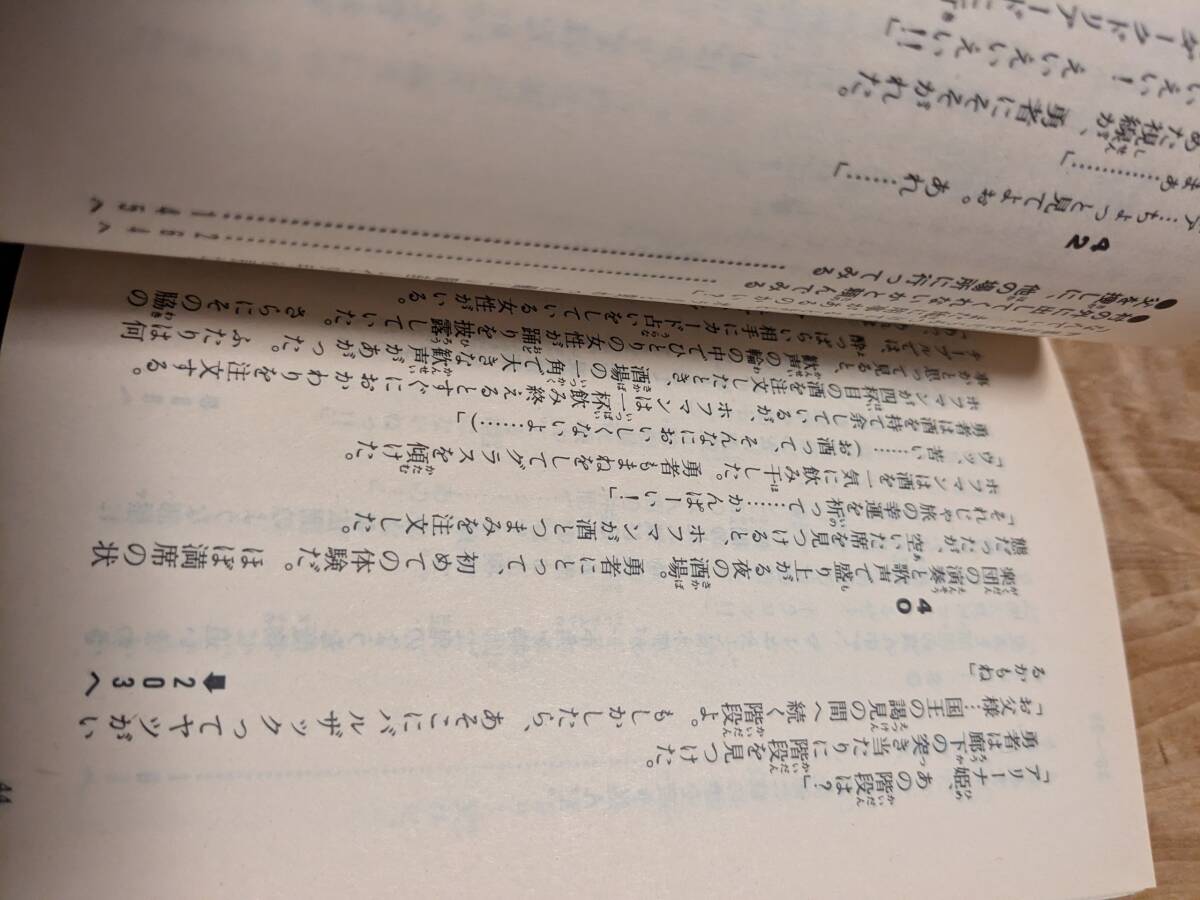 「アリーナ姫、あの階段は？」
勇者は廊下の突き当たりに階段を見つけた。
「お父様…国王の謁見の間へ続く階段よ。もしかしたら、あそこにバルザックってヤツがい
るかもね」
➡203へ
40
楽団の演奏と歌声で盛り上がる夜の酒場。勇者にとって、初めての体験だ。ほぼ満席の状
態だったが、空いた席を見つけると、ホフマンが酒とつまみを注文した。
「それじゃ旅の幸運を祈って……かんぱーい！」
ホフマンは酒を一気に飲み干した。勇者もまねをしてグラスを傾けた
「ウッ、苦い……（お酒って、そんなにおいしくないよ……）」
勇者は酒を持て余しているが、ホフマンは一杯飲み終えるとすぐにおかわりを注文する。
ホフマンが四杯目の酒を注文したとき、酒場の一角で大きな歓声があがった。ふたりは何
事かと思って見ると、歓声の輪の中でひとりの女性が踊りを披露していた。さらにその脇の
テーブルでは、酔っぱらい相手にカード占いをしている女性がいる。
44
出してくれないかと頼んでみる……264へ
●父を捜しに、他の場所に行ってみる……145へ
42
…ちょっと見てよぉ。あれ……」
まぁ…………」
めた視線が、勇者にそそがれた。
いえい！　えいえい！！」